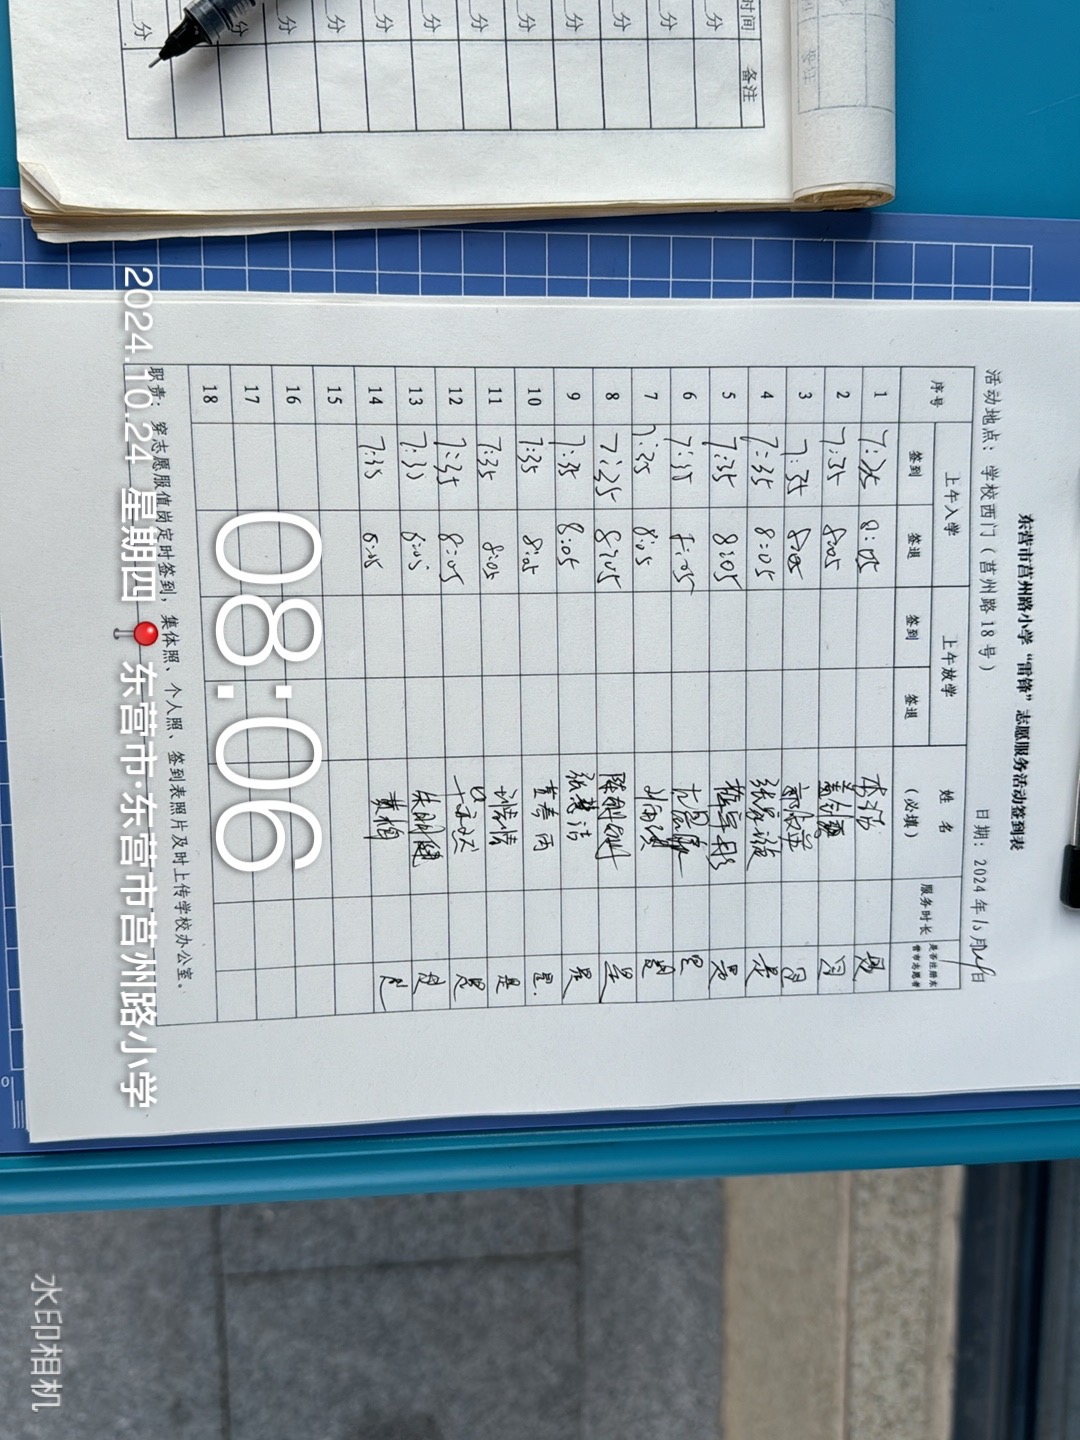 时间 分 分 分 分 分 分 分 分 分 分 分 分
备注
东营市莒州路小学“雷锋”志愿服务活动签到表
活动地点：学校西门（莒州路18号） 日期：2024年10月24日
序号 上午入学 上午放学 姓 名（必填） 服务时长 是否注册东营市志愿者
签到 签退 签到 签退
1 7:35 8:05 是
2 7:35 8:05 是
3 7:35 8:05 是
4 7:35 8:05 是
5 7:35 8:05 是
6 7:35 8:05 是
7 7:35 8:05 是
8 7:35 8:05 是
9 7:35 8:05 张慧洁 是
10 7:35 8:05 是
11 7:35 8:05 刘倩倩 是
12 7:35 8:05 是
13 7:35 8:05 是
14 7:35 8:05 黄梅 是
15
16
17
18
职责：穿志愿服值岗定时签到，集体照、个人照、签到表照片及时上传学校办公室。
08:06
2024.10.24 星期四 东营市·东营市莒州路小学
水印相机